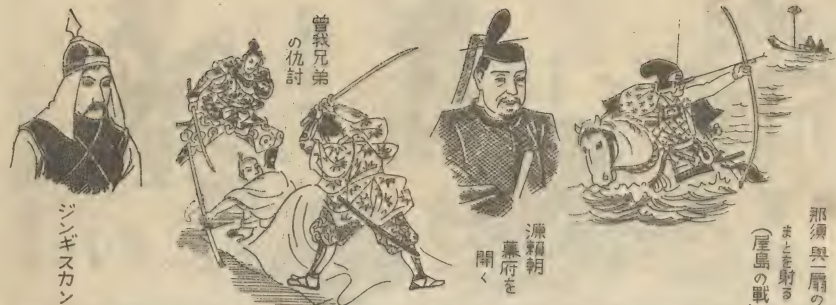 那須與一扇の
まとを射る
(屋島の戰
源頼朝
幕府を
開く
曽我兄弟
の仇討
ジンギスカン